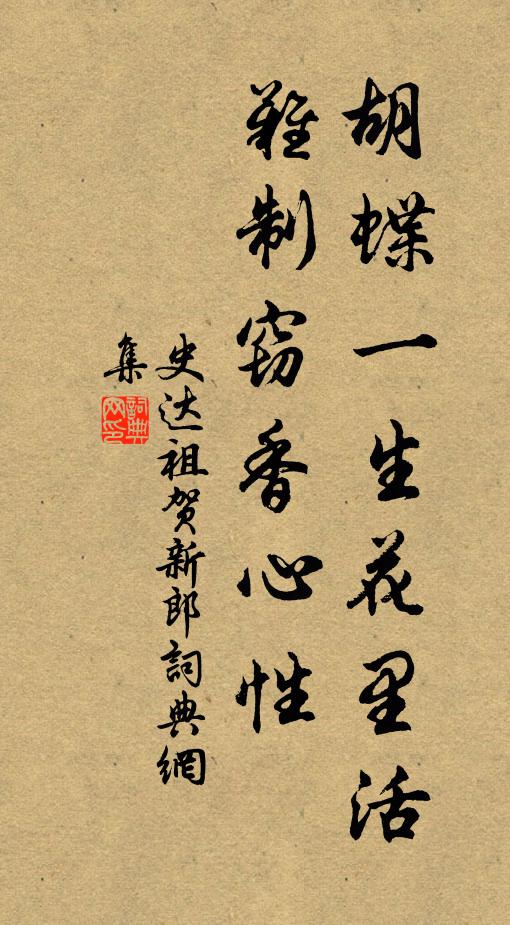 胡蝶一生花里活
難制窃香心性
史达祖贺新郎詞典網
集
詞典
网印